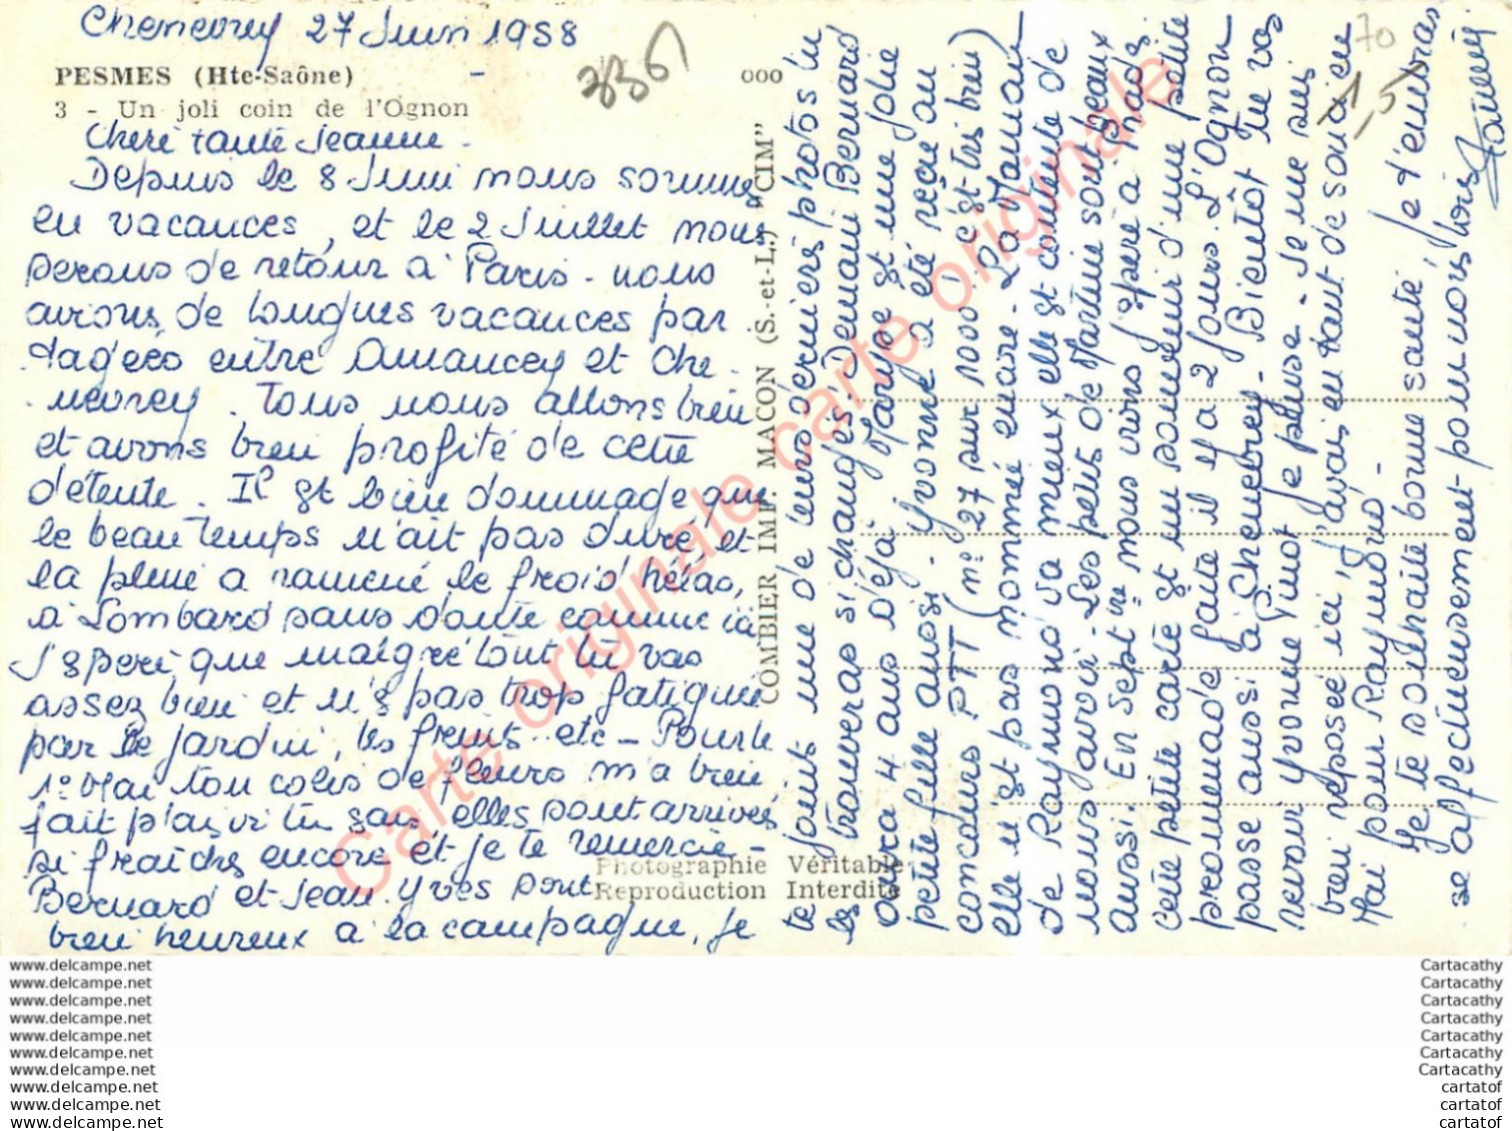 Chenevrey 27 Juin 1958
PESMES (Hte-Saône)
3 - Un joli coin de l'Ognon
ooo
70
1,5
Chère tante Jeanne -
Depuis le 8 Juin nous sommes
en vacances, et le 2 Juillet nous
serons de retour à Paris - nous
avions de longues vacances par
tagées entre Amancey et Che
nevrey. Tous nous allons bien
et avons bien profité de cette
détente. Il est bien dommage que
le beau temps n'ait pas duré, et
la pluie a ramené le froid hélas,
à Lombard sans doute comme ici
J'espère que malgré tout tu vas
assez bien et n'es pas trop fatiguée
par le jardin, les fruits - etc - Pour le
1er Mai ton colis de fleurs m'a bien
fait plaisir tu sais, elles sont arrivées
si fraîches encore et je te remercie -
Bernard et Jean-Yves sont
bien heureux à la campagne, je
COMBIER IMP. MACON (S.-et-L.) "CIM"
Photographie Véritable
Reproduction Interdite
te joins une de leurs dernières photos tu
les trouveras si changés. Demain Bernard
aura 4 ans déjà. Maryse est une jolie
petite fille aussi. Yvonne a été reçue au
concours PTT (n° 27 sur 1000 ! c'est très bien)
elle n'est pas nommée encore - La Maman
de Raymond va mieux elle est contente de
nous avoir - Les petits de Martine sont beaux
aussi. En Septbre nous irons j'espère à Phades.
cette petite carte est un souvenir d'une petite
promenade faite il y a 2 jours. L'Ognon
passe aussi à Chenebrey - Bientôt tu vas
revoir Yvonne Pinot je pense - Je me suis
bien reposée ici, j'avais eu tant de soucis en
Mai pour Raymond -
Je te souhaite bonne santé, je t'embras
se affectueusement pour nous tous
Carte originale carte originale carte originale
www.delcampe.net
www.delcampe.net
www.delcampe.net
www.delcampe.net
www.delcampe.net
www.delcampe.net
www.delcampe.net
www.delcampe.net
www.delcampe.net
www.delcampe.net
Cartacathy
Cartacathy
Cartacathy
Cartacathy
Cartacathy
Cartacathy
Cartacathy
cartatof
cartatof
cartatof